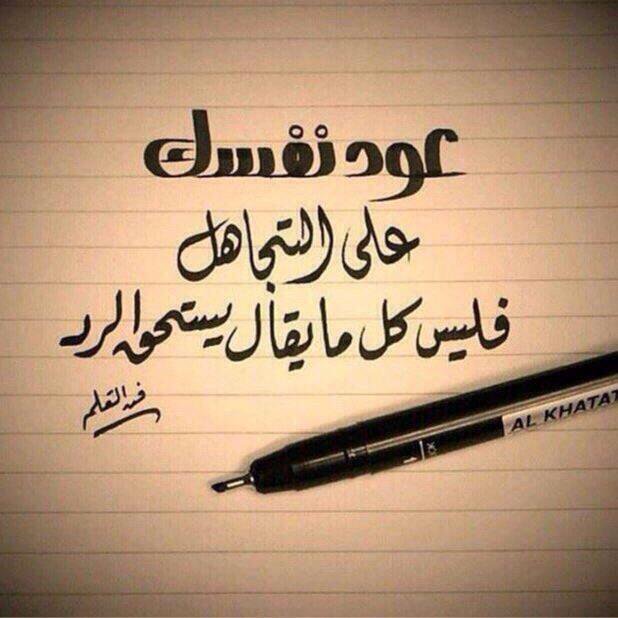 عود نفسك
على التجاهل
فليس كل ما يقال يستحق الرد
فن التعلم
AL KHATAT